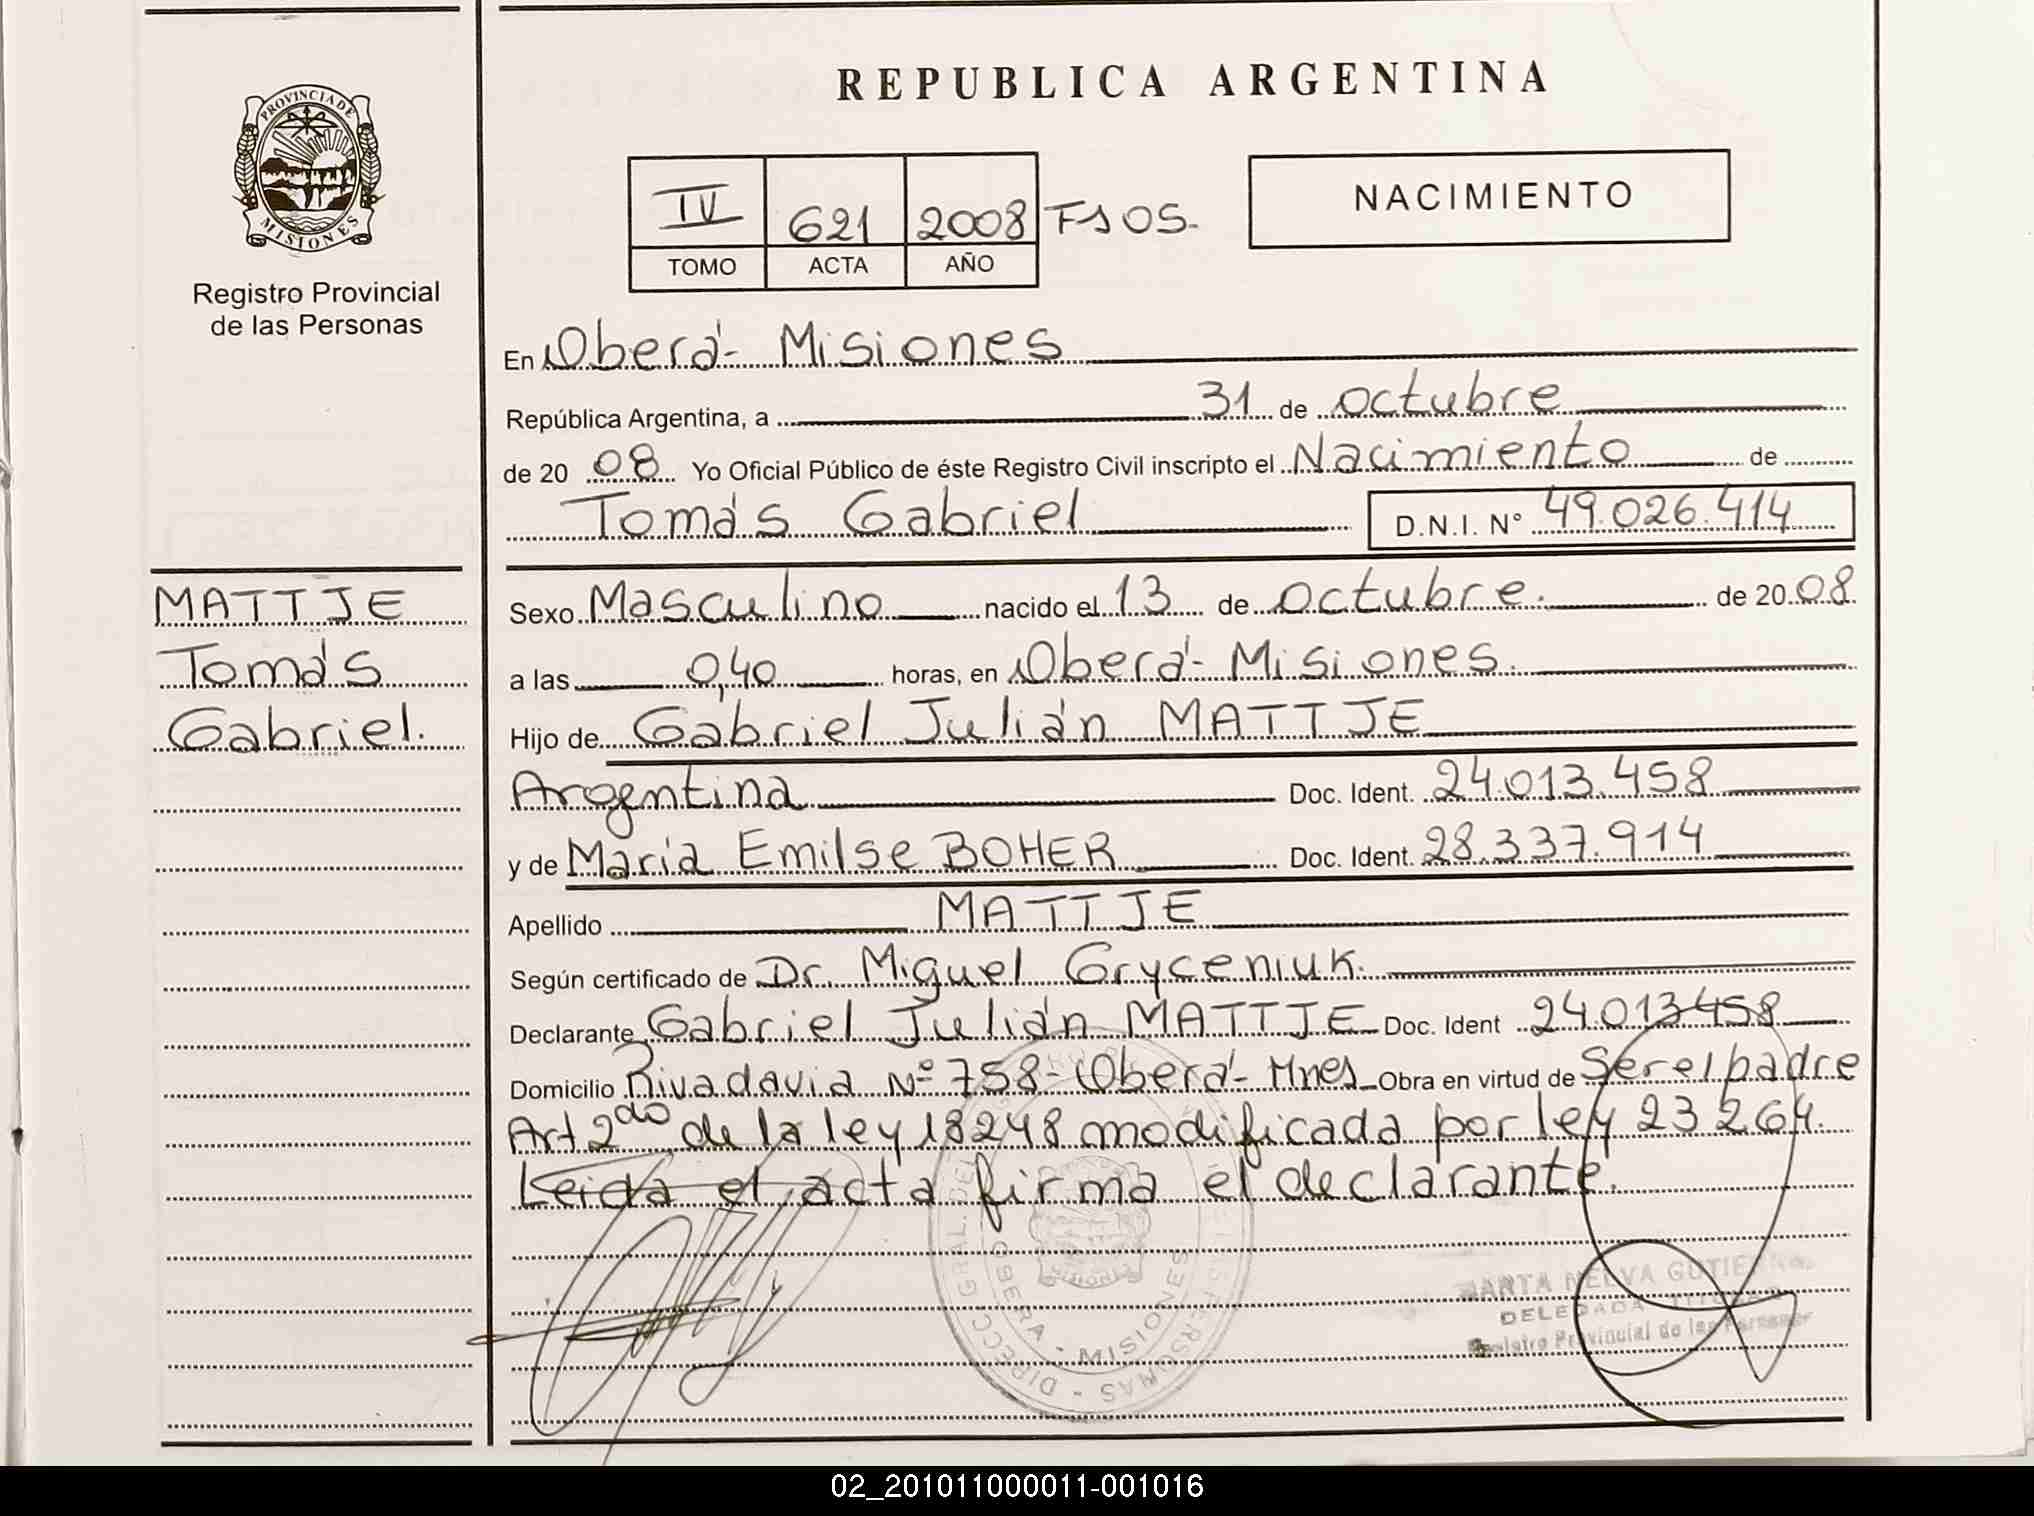 REPUBLICA ARGENTINA
PROVINCIA DE
MISIONES
Registro Provincial
de las Personas
IV 621 2008 FS 05.
TOMO ACTA AÑO
NACIMIENTO
En Oberá - Misiones
República Argentina, a 31 de octubre
de 20 08 Yo Oficial Público de éste Registro Civil inscripto el Nacimiento de
Tomás Gabriel D.N.I. N° 49.026.414
MATTJE
Tomás
Gabriel.
Sexo Masculino nacido el 13 de octubre. de 20 08
a las 0,40 horas, en Oberá - Misiones.
Hijo de Gabriel Julián MATTJE
Argentina Doc. Ident. 24.013.458
y de María Emilse BOHER Doc. Ident. 28.337.914
Apellido MATTJE
Según certificado de Dr. Miguel Gryceniuk.
Declarante Gabriel Julián MATTJE Doc. Ident 24.013458
Domicilio Rivadavia Nº 758 - Oberá - Mnes Obra en virtud de Ser el padre
Art 2do de la ley 18248 modificada por ley 23264.
Leida el acta firma el declarante.
DIRECC GRAL. DEL PERSONAS
OBERA - MISIONES
MISIONES
MARTA NELVA GUTIERREZ
DELEGADA TITULAR
Registro Provincial de las Personas
02_201011000011-001016